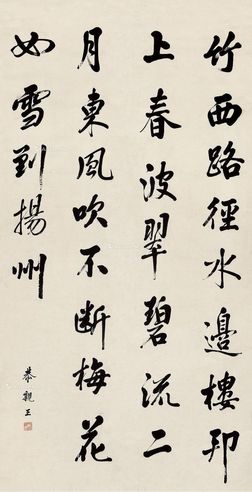 竹西路徑水邊樓邗
上春波翠碧流二
月東風吹不斷梅花
如雪到揚州
恭親王